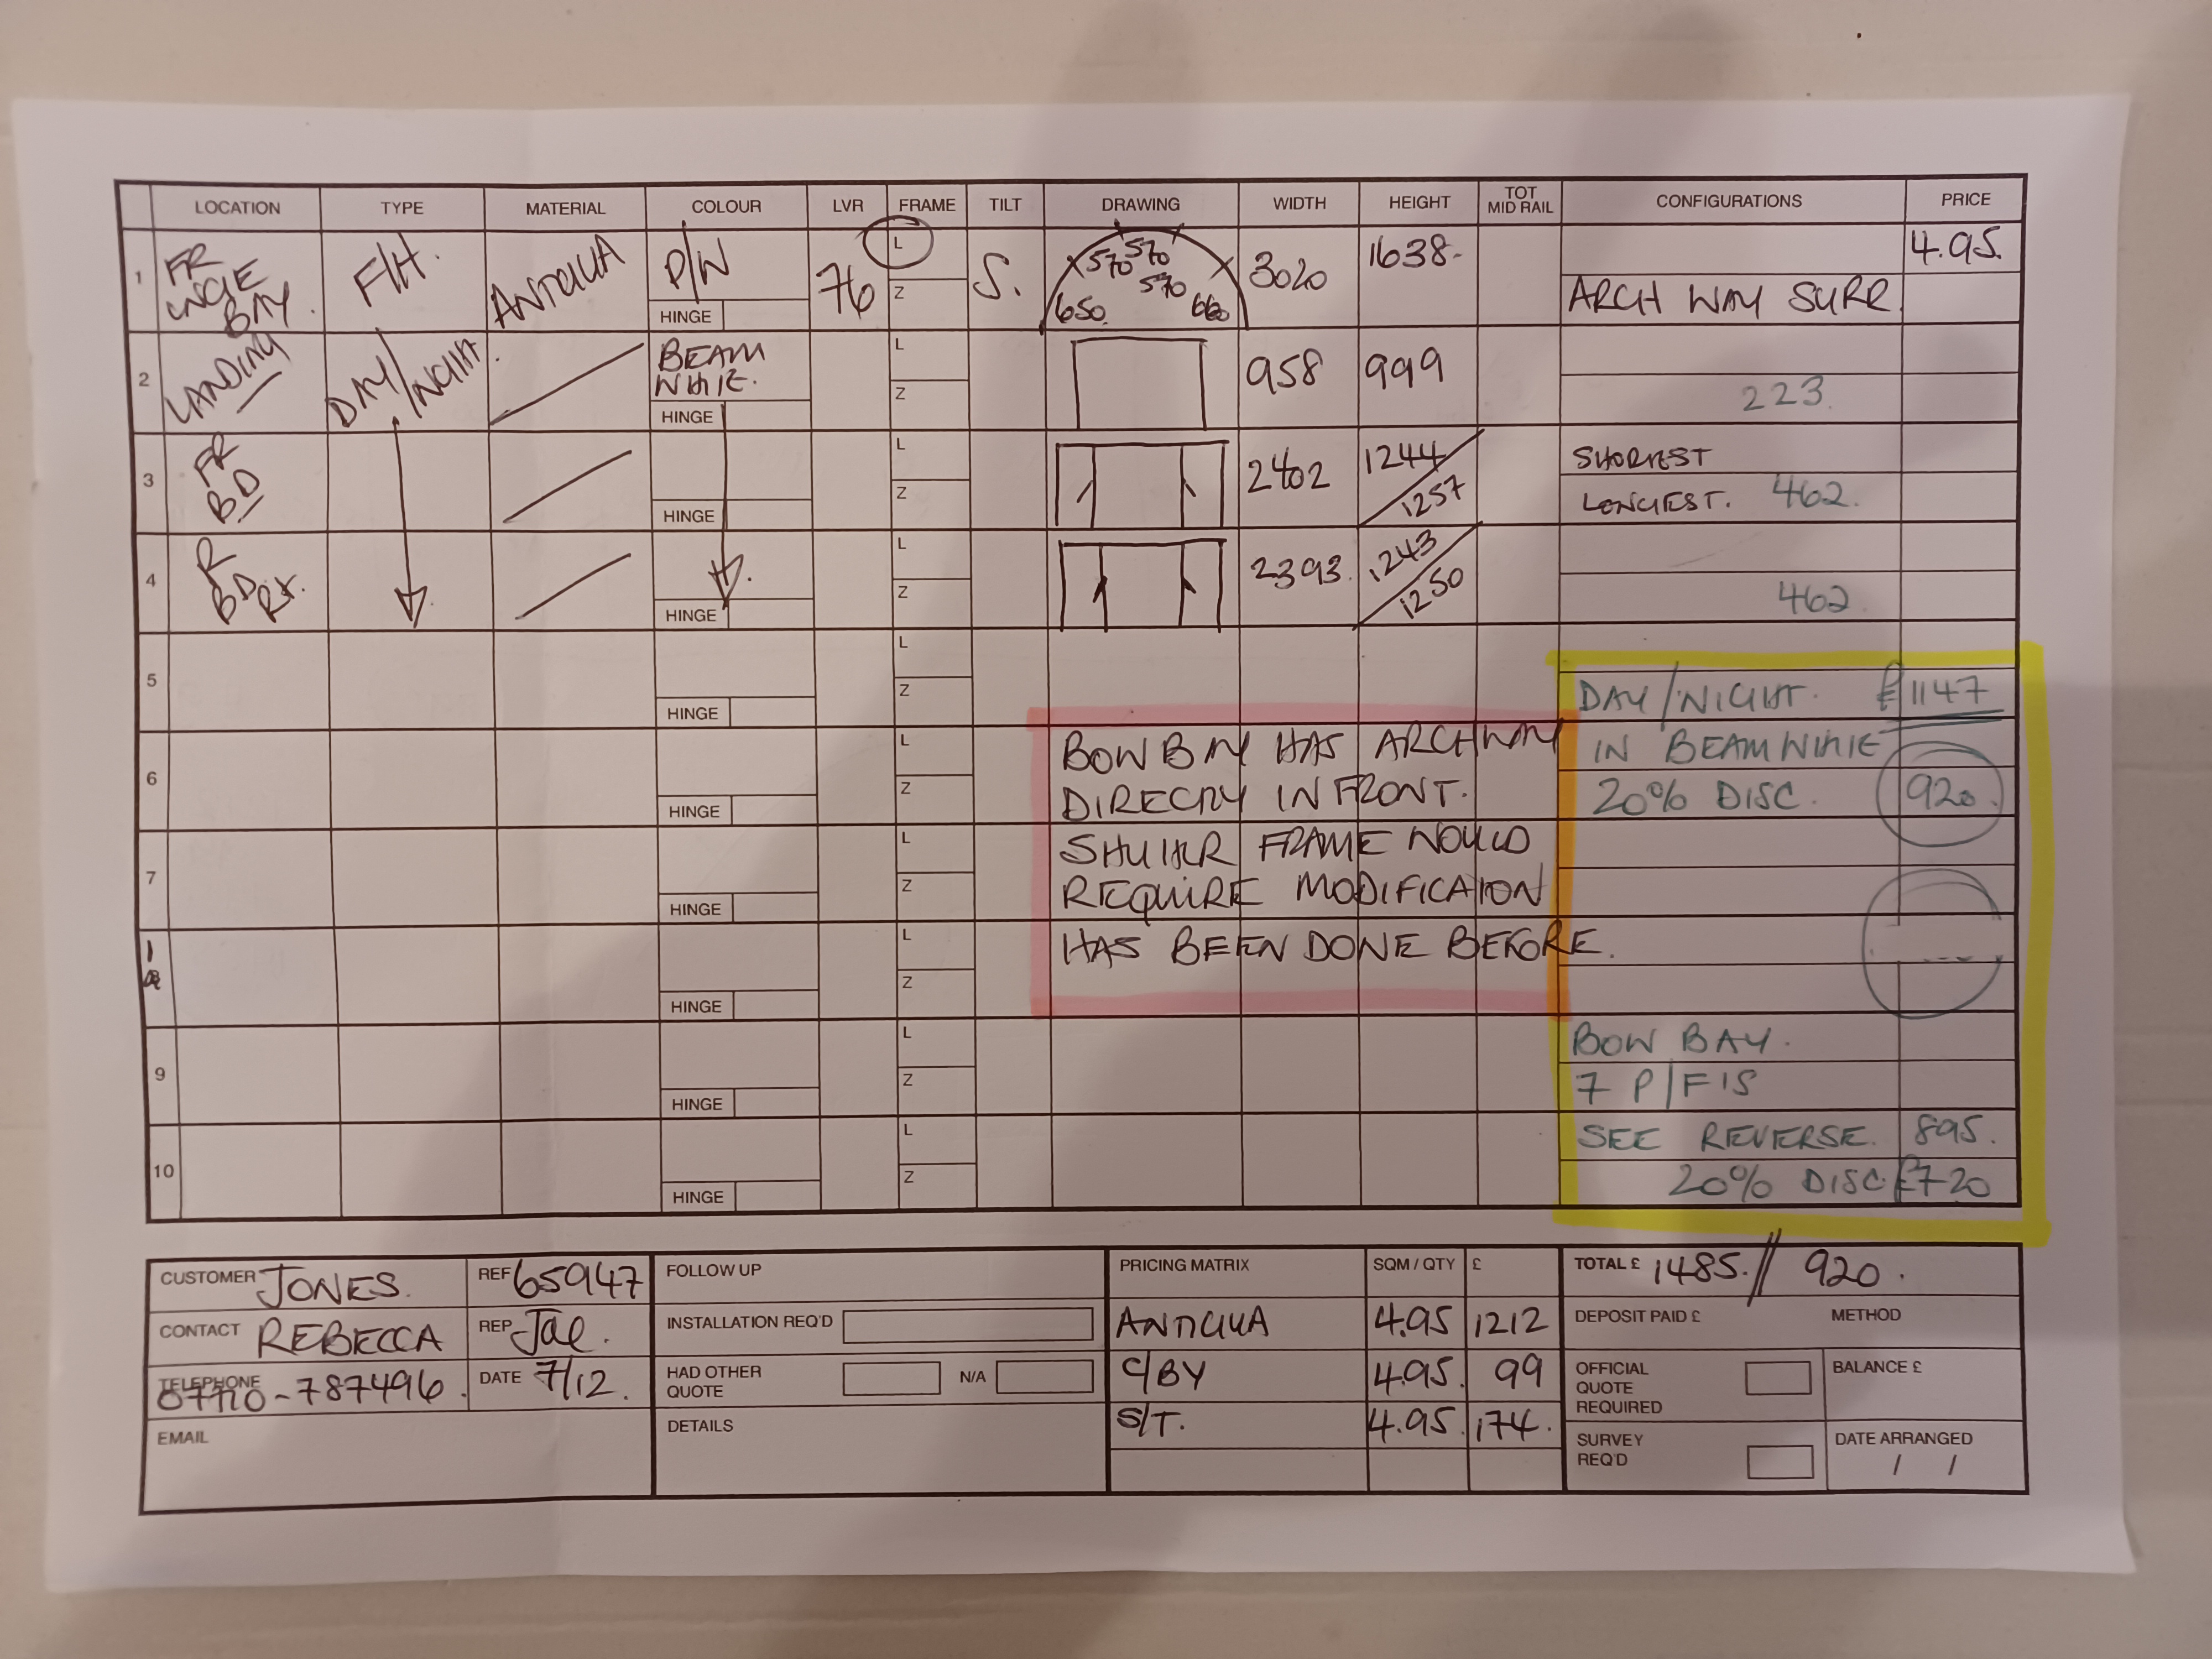 LOCATION TYPE MATERIAL COLOUR LVR FRAME TILT DRAWING WIDTH HEIGHT TOT MID RAIL CONFIGURATIONS PRICE
1 FR BAY. F/H. ANTIGUA P/W HINGE 76 L Z S. 650 570 570 570 660 3020 1638- ARCH WAY SURR. 4.95.
2 LANDING DAY/NIGHT. BEAM WHITE. HINGE L Z 958 999 223.
3 FR BD HINGE L Z 2402 1244 / 1257 SHORTEST LONGEST. 462.
4 R BD Rt. HINGE L Z 2393. 1243 / 1250 462
5 HINGE L Z DAY/NIGHT. £1147
6 HINGE L Z BOW BAY HAS ARCHWAY IN BEAM WHITE
DIRECTLY IN FRONT. 20% DISC. 920.
7 HINGE L Z SHUTTER FRAME WOULD
REQUIRE MODIFICATION
8 HINGE L Z HAS BEEN DONE BEFORE.
9 HINGE L Z BOW BAY.
7 P/FITS
10 HINGE L Z SEE REVERSE. 895.
20% DISC £720
CUSTOMER JONES. REF 65947
CONTACT REBECCA REP Jae.
TELEPHONE 07710-787496. DATE 7/12.
EMAIL
FOLLOW UP
INSTALLATION REQ'D
HAD OTHER QUOTE N/A
DETAILS
PRICING MATRIX SQM / QTY £
ANTIGUA 4.95 1212
C/BY 4.95. 99
S/T. 4.95. 174.
TOTAL £ 1485. // 920.
DEPOSIT PAID £ METHOD
OFFICIAL QUOTE REQUIRED BALANCE £
SURVEY REQ'D DATE ARRANGED
/ /